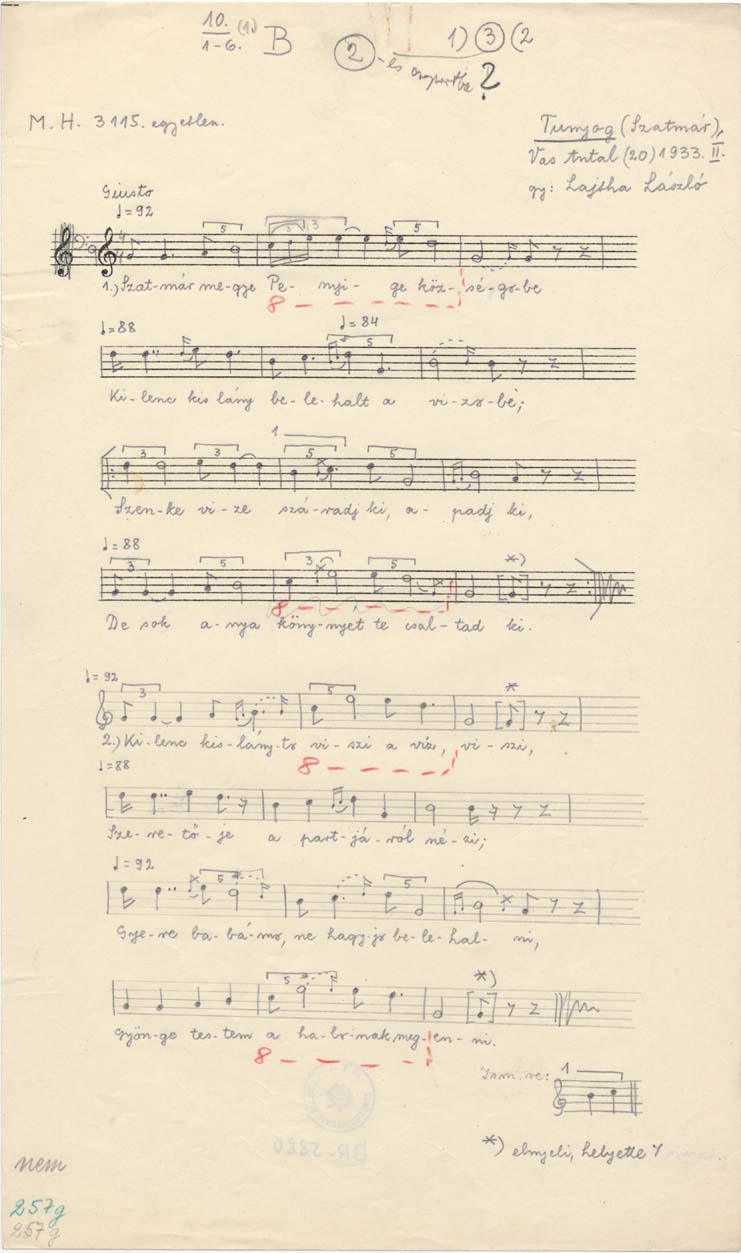 10. (1)
1-6. B
2 -es csoportba ?
1) 3 (2
M. H. 3115. egyetlen.
Tunyog (Szatmár),
Vas Antal (20) 1933. II.
gy: Lajtha László
Giusto
♩=92
5 3 5
1.) Szat-már me-gye Pe- nyi- ge köz- sé-gö-be
8
♩=88 ♩=84
5
Ki-lenc kis lány be-le-halt a vi-zö-be;
1
3 3 5 5
Szen-ke vi-ze szá-radj ki, a-padj ki,
♩=88
3 5 3 5 *)
8
De sok a-nya köny-nyet te csal-tad ki.
♩=92
3 5 *
2.) Ki-lenc kis-lány-to vi-szi a víz, vi-szi,
8
♩=88
Sze-re-tő-je a part-já-ról né-zi;
♩=92
5 5
Gye-re ba-bá-mo, ne hagy-jo be-le-hal-ni,
5 *)
Gyön-ge tes-tem a ha-bo-nak meg-en-ni.
8
Ism. re: 1
*) elnyeli, helyette
BR-2880
nem
257g
257g